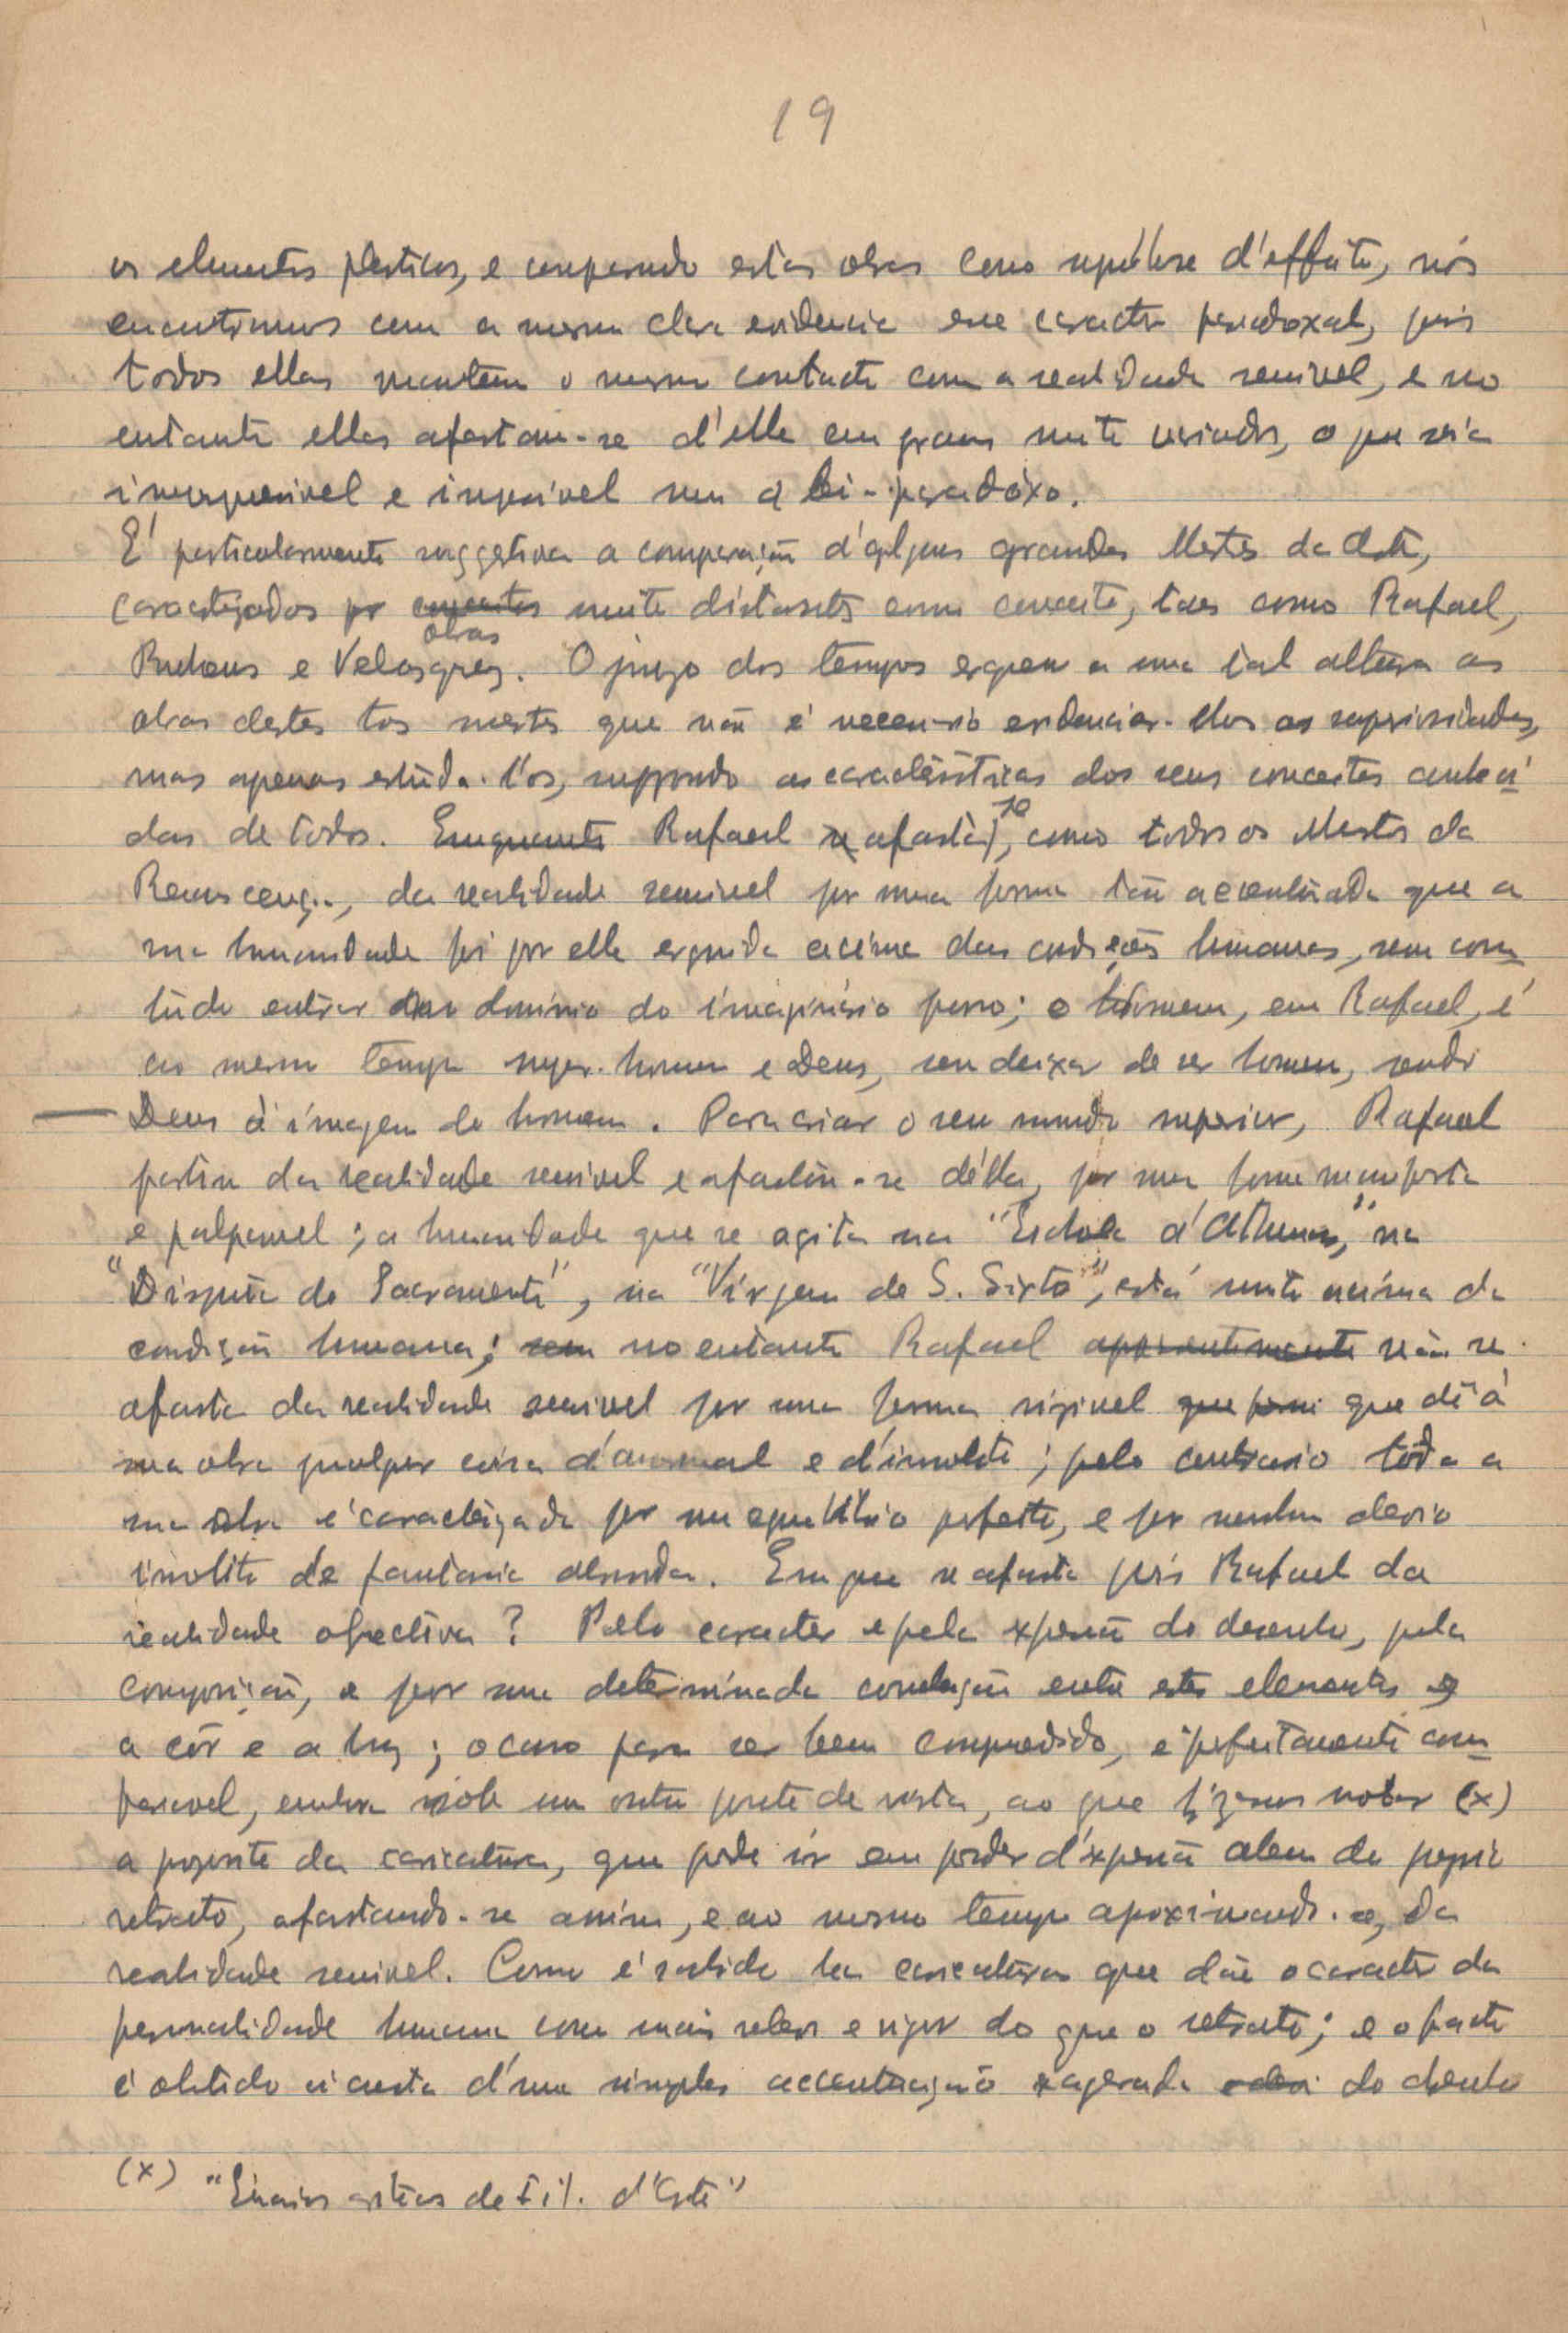 19
os elementos plasticos, e comparando estas obras como synthese d'effeito, nós
encontramos com a mesma clara evidencia esse caracter paradoxal, pois
todos ellas mantêm o mesmo contacto com a realidade sensivel, e no
entanto ellas afastam-se d'ella em graus muito variados, o que seria
incompreensivel e impossivel sem a lei-paradoxo.
E' particularmente suggestiva a comparação d'alguns grandes Mestres da Arte,
caracterizados por conceitos muito distantes como conceito, taes como Rafael,
obras
Rubens e Velasquez. O juizo dos tempos ergueu a uma tal altura as
obras destes tres mestres que não é necessario evidenciar-lhes as superioridades,
mas apenas estuda-l'os, suppondo as caracteristicas dos seus conceitos conheci
das de todos. Emquanto Rafael se afasta se, como todos os Mestres da
Renascença, da realidade sensivel por uma forma tão accentuada que a
sua humanidade foi por elle erguida acima das condições humanas, sem com
tudo entrar no dominio do imaginario puro; o homem, em Rafael, é
ao mesmo tempo super-homem e Deus, sem deixar de ser homem, sendo
Deus à imagem do homem. Para criar o seu mundo superior, Rafael
partiu da realidade sensivel e afastou-se d'ella, por uma forma manifesta
e palpavel; a humanidade que se agita na "Escola d'Athenas", na
"Disputa do Sacramento", na "Virgem de S. Sixto", está muito acima da
condição humana; sem no entanto Rafael apparentemente não se
afasta da realidade sensivel por uma forma visivel que dê á
sua obra qualquer coisa d'anormal e d'insolito; pelo contrario toda a
sua obra é caracterizada por um equilibrio perfeito, e por nenhum
insolito de fantasia absurda. Em que se afasta pois Rafael da
realidade objectiva? Pelo caracter e pela expressão do desenho, pela
composição, e por uma determinada correlação entre estes elementos e
a côr e a luz; o caso para ser bem compreendido, é perfeitamente com
paravel, embora sob um outro ponto de vista, ao que fizemos notar (x)
a proposito da caricatura, que pode ir em poder d'expressão alem do proprio
retrato, afastando-se assim, e ao mesmo tempo aproximando-se, da
realidade sensivel. Como é sabido ha caricaturas que dão o caracter da
personalidade humana com mais relevo e vigor do que o retrato; e o facto
é obtido á custa d'uma simples accentuação exagerada do desenho
(x) "Ensaios criticos de Fil. d'Arte"